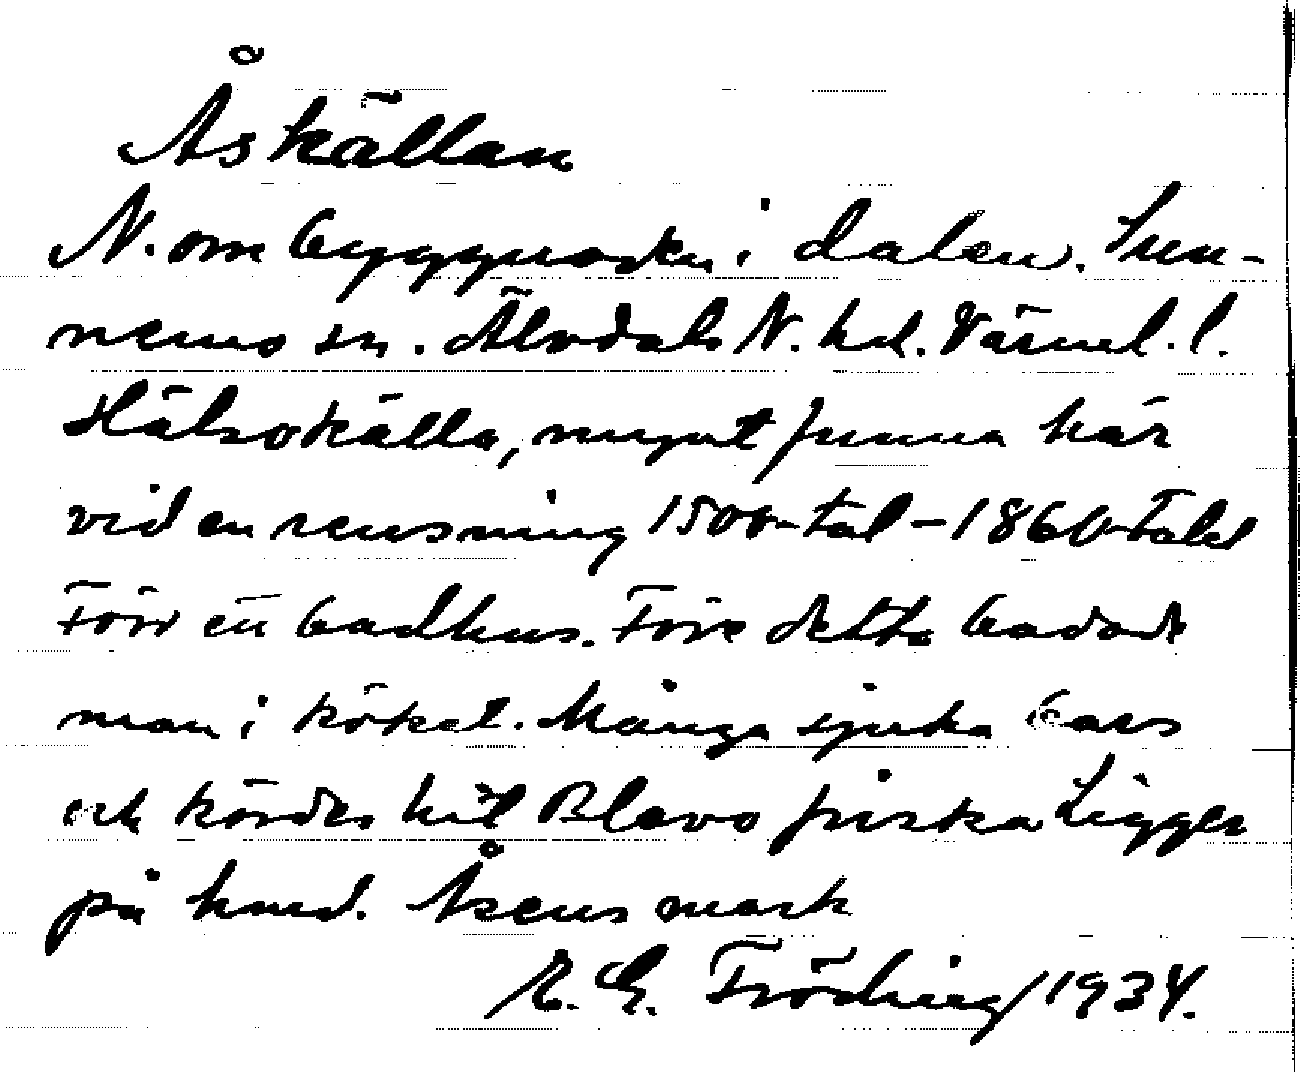 Åskällan
N. om byggnaden i dalen. Sun-
nemo sn. Älvdals N. hd. Värml. l.
Hälsokälla, mynt funna här
vid en rensning 1500-tal - 1860-talet
Förr ett badhus. Före detta badade
man i köket. Många sjuka bars
och kördes hit Blevo friska Ligger
på hmd. Åsens mark
E. G. Fröding/1934.